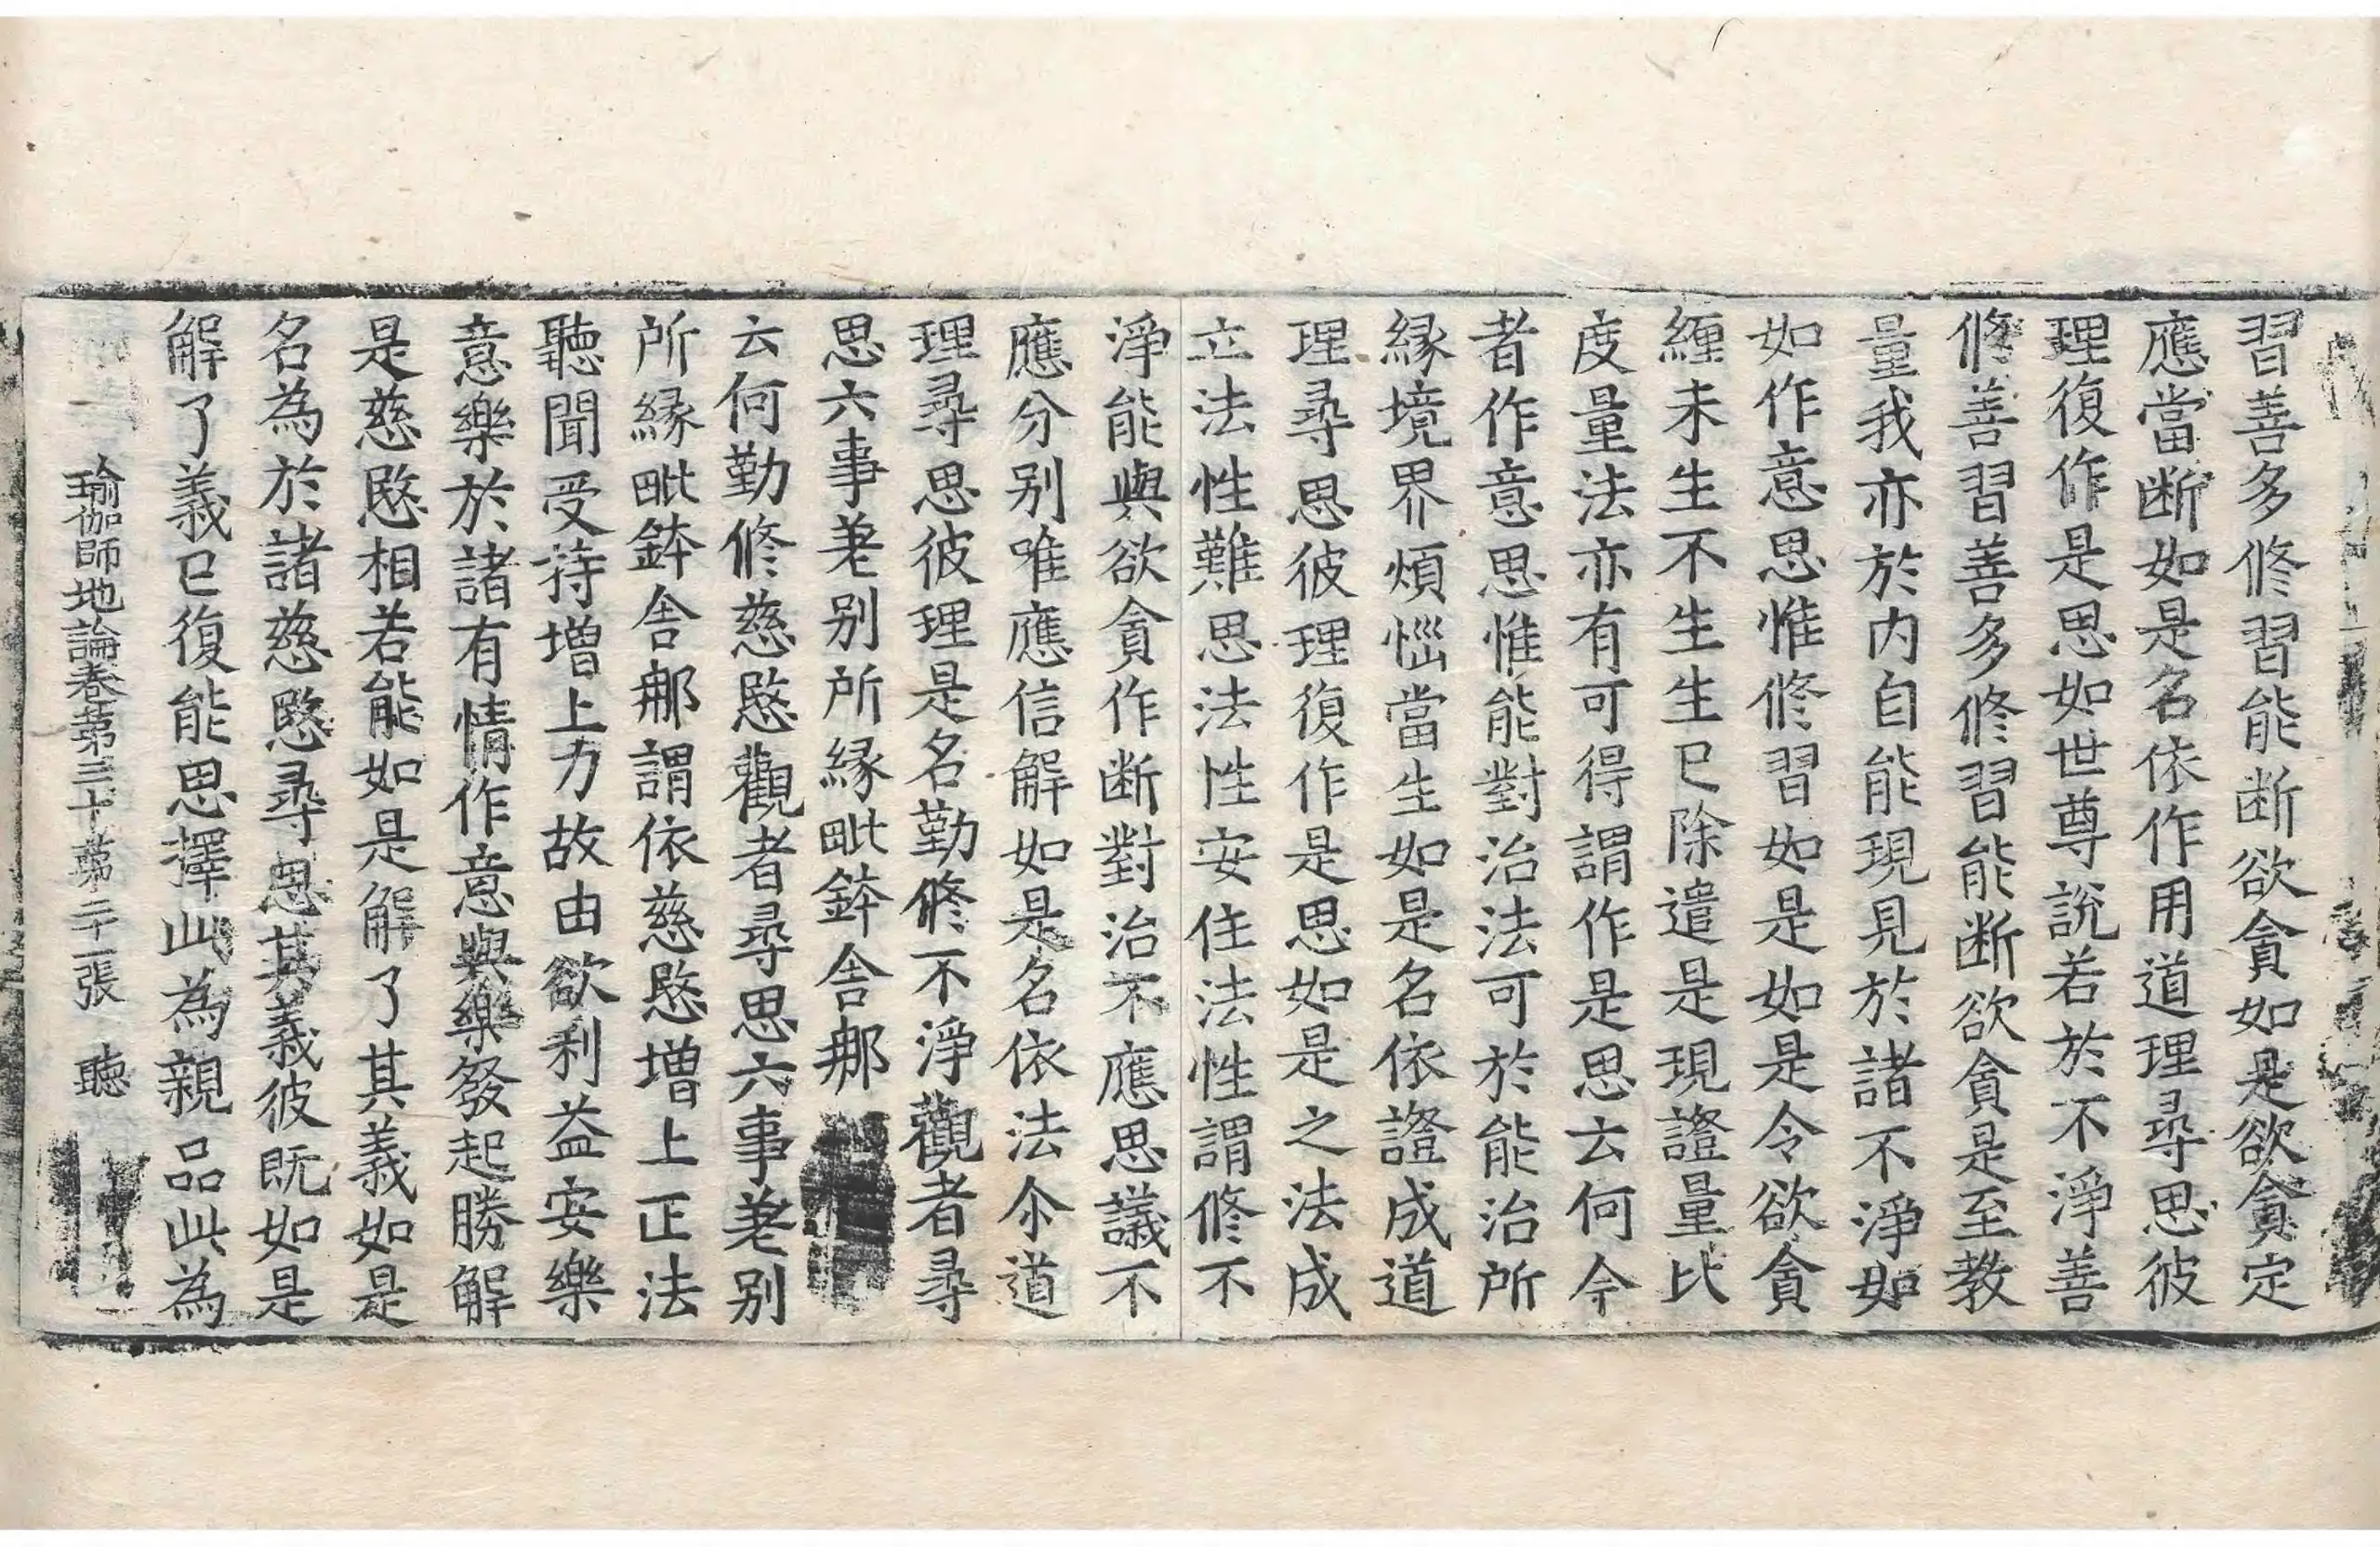 習善多修習能断欲貪如是欲貪定
應當断如是名依作用道理尋思彼
理復作是思如世尊說若於不淨善
修善習善多修習能断欲貪是至教
量我亦於内自能現見於諸不淨如
如作意思惟修習如是如是令欲貪
纏未生不生生已除遣是現證量比
度量法亦有可得謂作是思云何今
者作意思惟能對治法可於能治所
縁境界煩惱當生如是名依證成道
理尋思彼理復作是思如是之法成
立法性難思法性安住法性謂修不
淨能與欲貪作断對治不應思議不
應分别唯應信解如是名依法尒道
理尋思彼理是名勤修不淨觀者尋
思六事差别所縁毗鉢舍那
云何勤修慈愍觀者尋思六事差别
所縁毗鉢舍那謂依慈愍增上正法
聽聞受持增上力故由欲利益安樂
意樂於諸有情作意與樂發起勝解
是慈愍相若能如是解了其義如是
名為於諸慈愍尋思其義彼既如是
解了義已復能思擇此為親品此為
瑜伽師地論卷第三十 第二十一張 聽